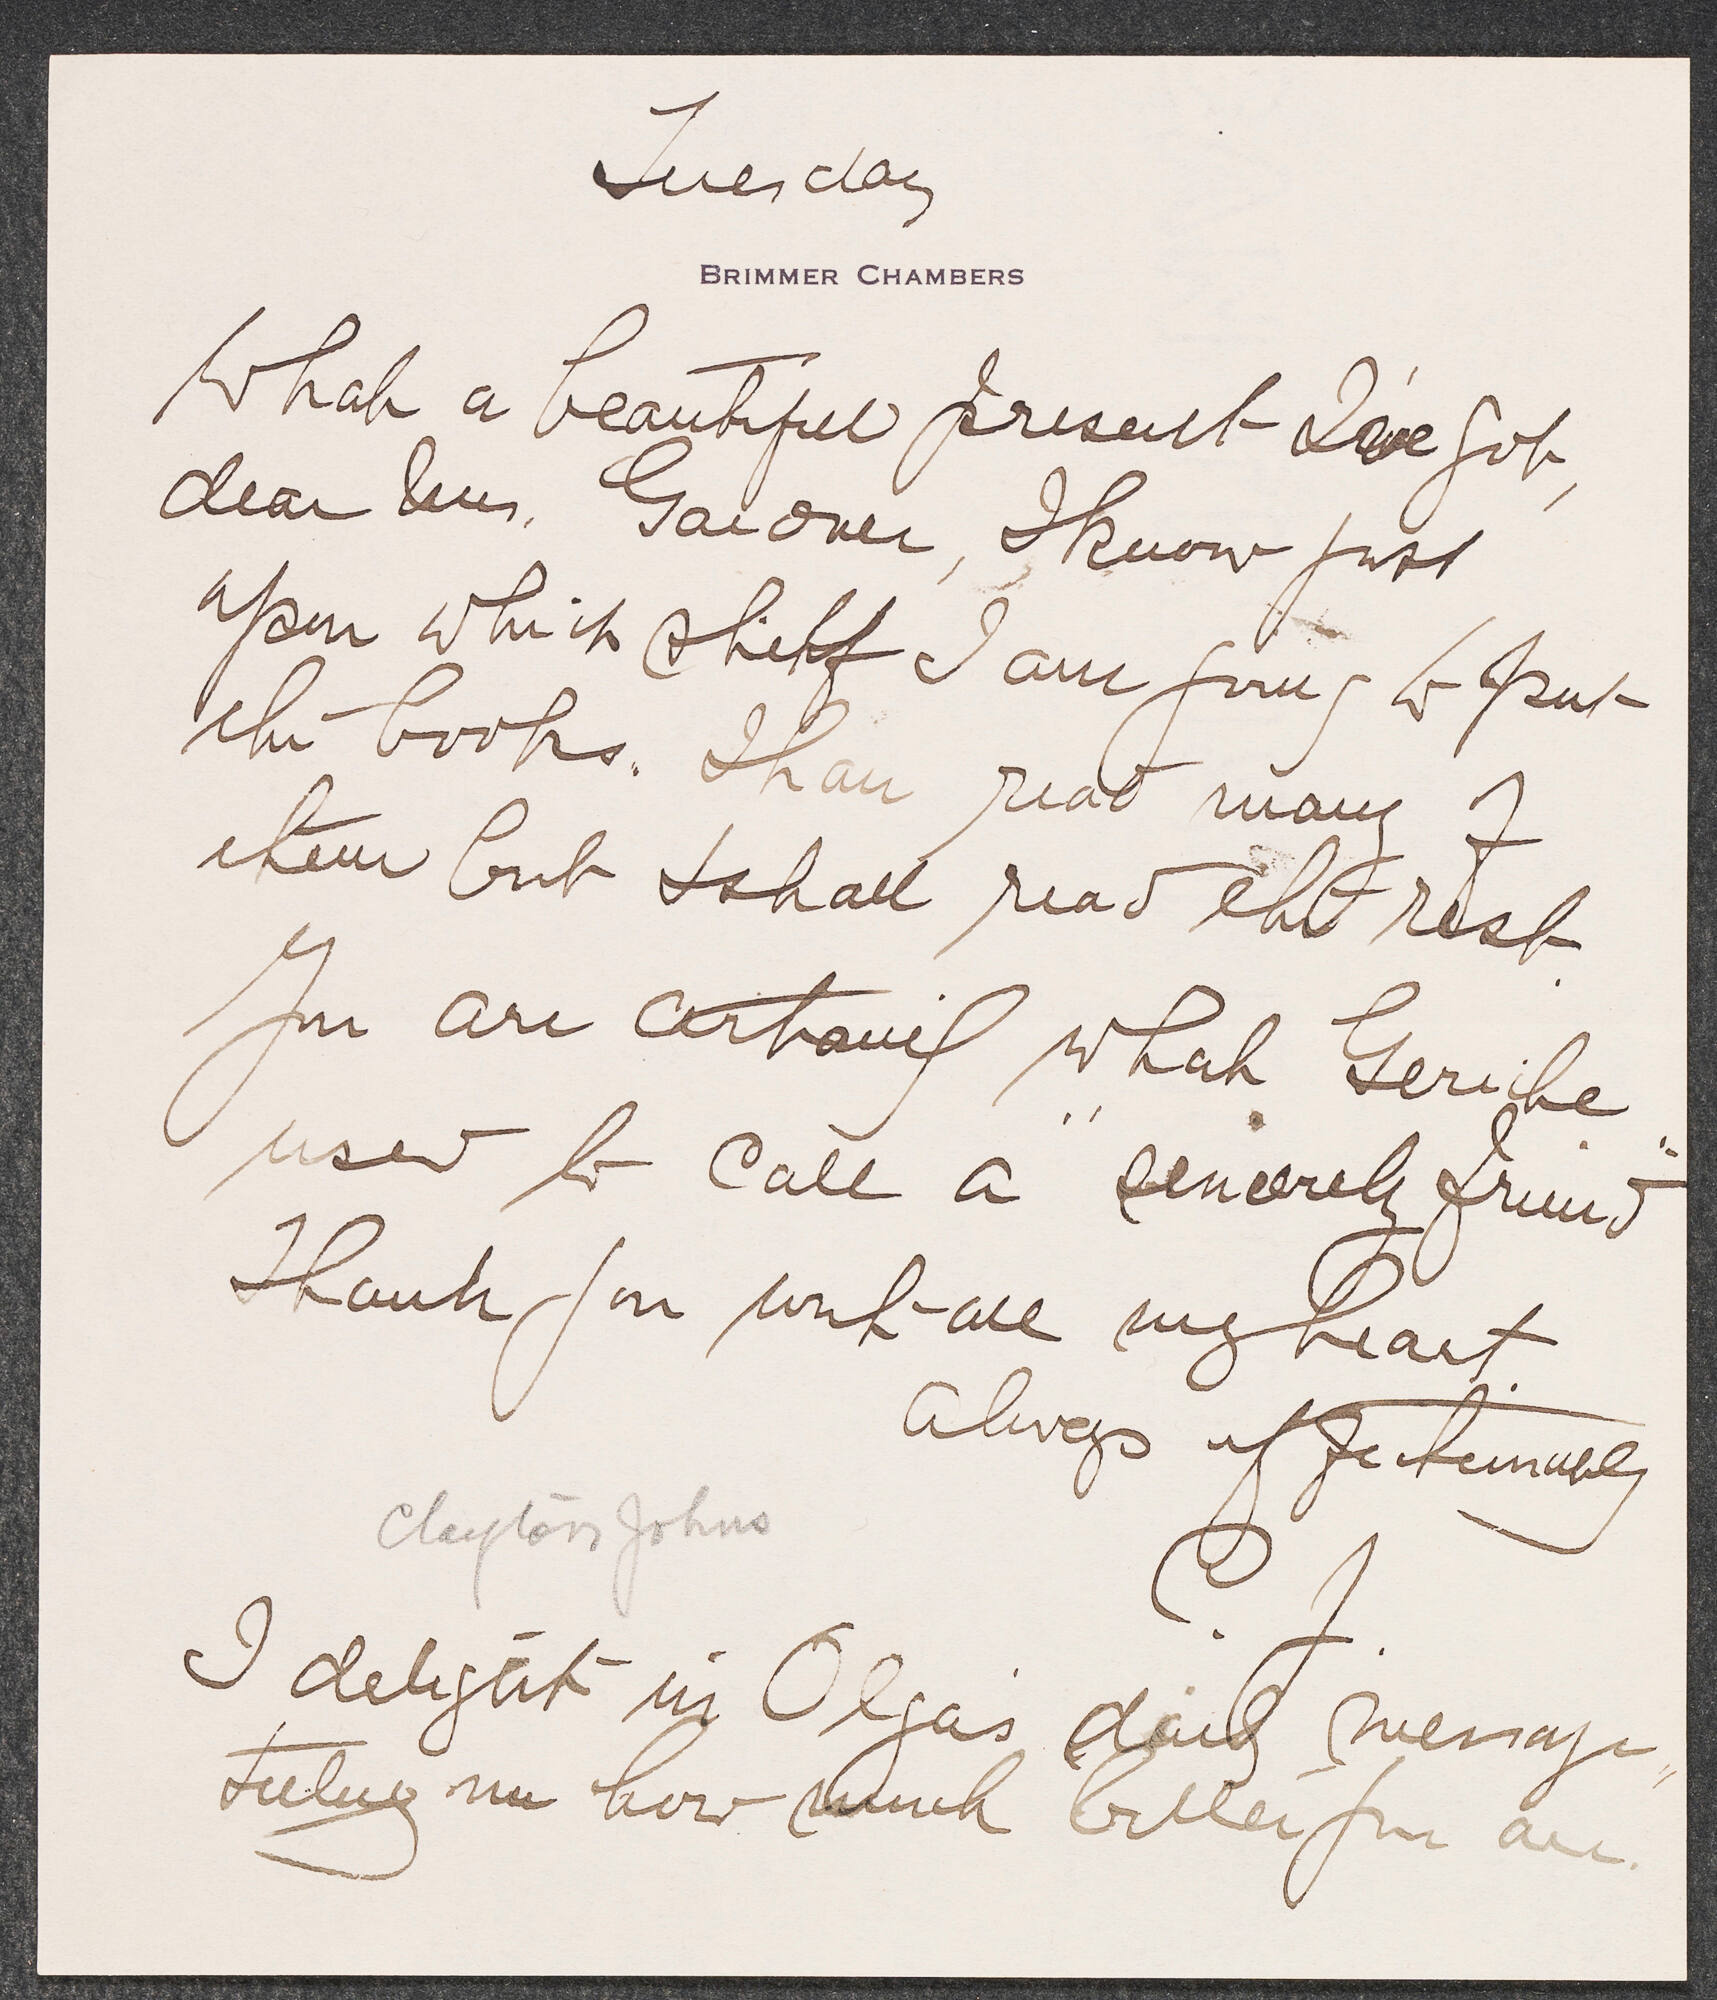 Tuesday
BRIMMER CHAMBERS
What a beautiful present I've got,
dear Mrs. Gardner, I know just
upon which shelf I am going to put
the books. I have read many of
them but I shall read the rest.
You are certainly what Gericke
used to call a "sincerely friend"
Thank you with all my heart.
Always affectionately
C. J.
Clayton Johns
I delight in Olga's daily message,
telling me how much better you are.